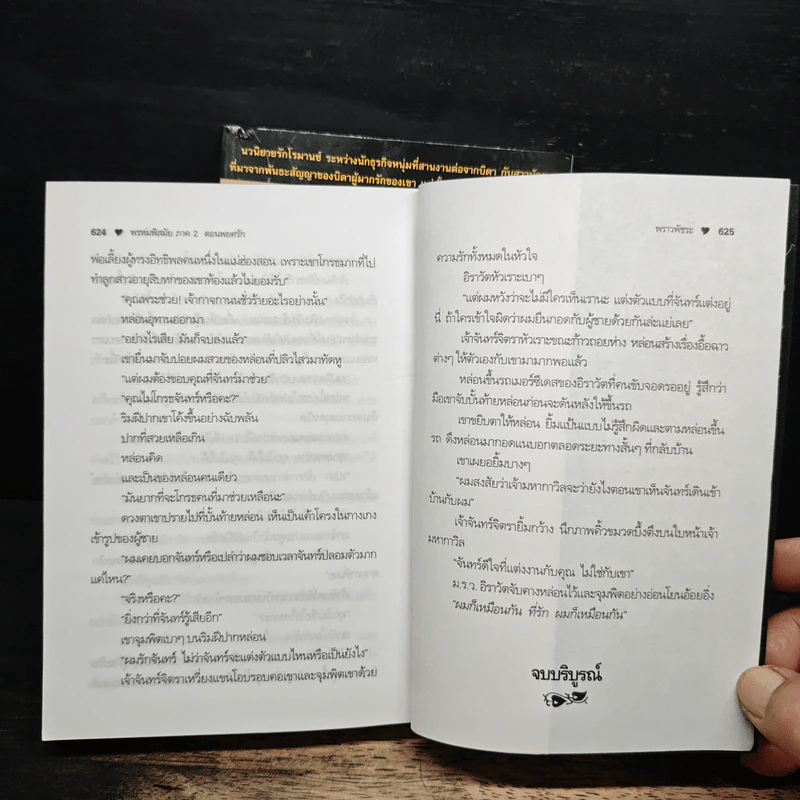 นวนิยายรักโรมานซ์ ระหว่างนักธุรกิจหนุ่มที่สานงานต่อจากบิดา กับสาว
ที่มาจากพันธะสัญญาของบิดาผู้มากรักของเขา
624 ♥ พรหมพิสมัย ภาค 2 ตอนพยศรัก
พ่อเลี้ยงผู้ทรงอิทธิพลคนหนึ่งในแม่ฮ่องสอน เพราะเขาโกรธมากที่ไป
ทำลูกสาวอายุสิบหกของเขาท้องแล้วไม่ยอมรับ"
"คุณพระช่วย! เจ้ากาจกานนชั่วร้ายอะไรอย่างนั้น"
หล่อนอุทานออกมา
"อย่างไรเสีย มันก็จบลงแล้ว"
เขายื่นมาจับปอยผมสวยของหล่อนที่ปลิวไสวมาทัดหู
"แต่ผมต้องขอบคุณที่จันทร์มาช่วย"
"คุณไม่โกรธจันทร์หรือคะ?"
ริมฝีปากเขาโค้งขึ้นอย่างฉับพลัน
ปากที่สวยเหลือเกิน
หล่อนคิด
และเป็นของหล่อนคนเดียว
"มันยากที่จะโกรธคนที่มาช่วยเหลือนะ"
ดวงตาเขาปรายไปที่บั้นท้ายหล่อน เห็นเป็นเค้าโครงในกางเกง
เข้ารูปของผู้ชาย
"ผมเคยบอกจันทร์หรือเปล่าว่าผมชอบเวลาจันทร์ปลอมตัวมาก
แค่ไหน?"
"จริงหรือคะ?"
"ยิ่งกว่าที่จันทร์รู้เสียอีก"
เขาจุมพิตเบาๆ บนริมฝีปากหล่อน
"ผมรักจันทร์ ไม่ว่าจันทร์จะแต่งตัวแบบไหนหรือเป็นยังไง"
เจ้าจันทร์จิตราเหวี่ยงแขนโอบรอบคอเขาและจุมพิตเขาด้วย
พราวพัชระ ♥ 625
ความรักทั้งหมดในหัวใจ
อิราวัตหัวเราะเบาๆ
"แต่ผมหวังว่าจะไม่มีใครเห็นเรานะ แต่งตัวแบบที่จันทร์แต่งอยู่
นี่ ถ้าใครเข้าใจผิดว่าผมยืนกอดกับผู้ชายด้วยกันล่ะแย่เลย"
เจ้าจันทร์จิตราหัวเราะขณะก้าวถอยห่าง หล่อนสร้างเรื่องอื้อฉาว
ต่างๆ ให้ตัวเองกับเขามามากพอแล้ว
หล่อนขึ้นรถเมอร์ซีเดสของอิราวัตที่คนขับจอดรออยู่ รู้สึกว่า
มือเขาจับบั้นท้ายหล่อนก่อนจะดันหลังให้ขึ้นรถ
เขาขยิบตาให้หล่อน ยิ้มแป้นแบบไม่รู้สึกผิดและตามหล่อนขึ้น
รถ ดึงหล่อนมากอดแนบอกตลอดระยะทางสั้นๆ ที่กลับบ้าน
เขาเผยอยิ้มบางๆ
"ผมสงสัยว่าเจ้ามหากาวิลจะว่ายังไงตอนเขาเห็นจันทร์เดินเข้า
บ้านกับผม"
เจ้าจันทร์จิตรายิ้มกว้าง นึกภาพคิ้วขมวดบึ้งตึงบนใบหน้าเจ้า
มหากาวิล
"จันทร์ดีใจที่แต่งงานกับคุณ ไม่ใช่กับเขา"
ม.ร.ว. อิราวัตจับคางหล่อนไว้และจุมพิตอย่างอ่อนโยนอ้อยอิ่ง
"ผมก็เหมือนกัน ที่รัก ผมก็เหมือนกัน"
จบบริบูรณ์